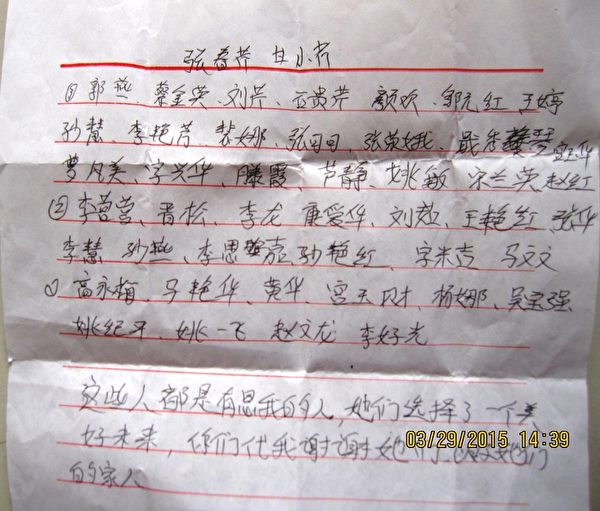 张春芹 甘小芹
③郭燕、蔡金英、刘芹、孟贵芹 颜欢、邹红、王婷
孙慧、李艳芹、裴娜、张田田、张英娥、
罗凡美、字兴华、滕霞、芦静、姚敏、宋兰英、赵红
②李营营、晋松、李龙、康爱华、刘、王艳红、张华
李慧 孙燕、李思嘉、孙艳红、字朱吉 马文文
高永梅、马艳华、黄华、宫天财、杨娜、吴宝强
姚纪平、姚一飞 赵文龙 李好光
这些人都是有恩我的人,她们选择了一个美
好未来,你们代我谢谢她们
的家人
03/29/2015 14:39